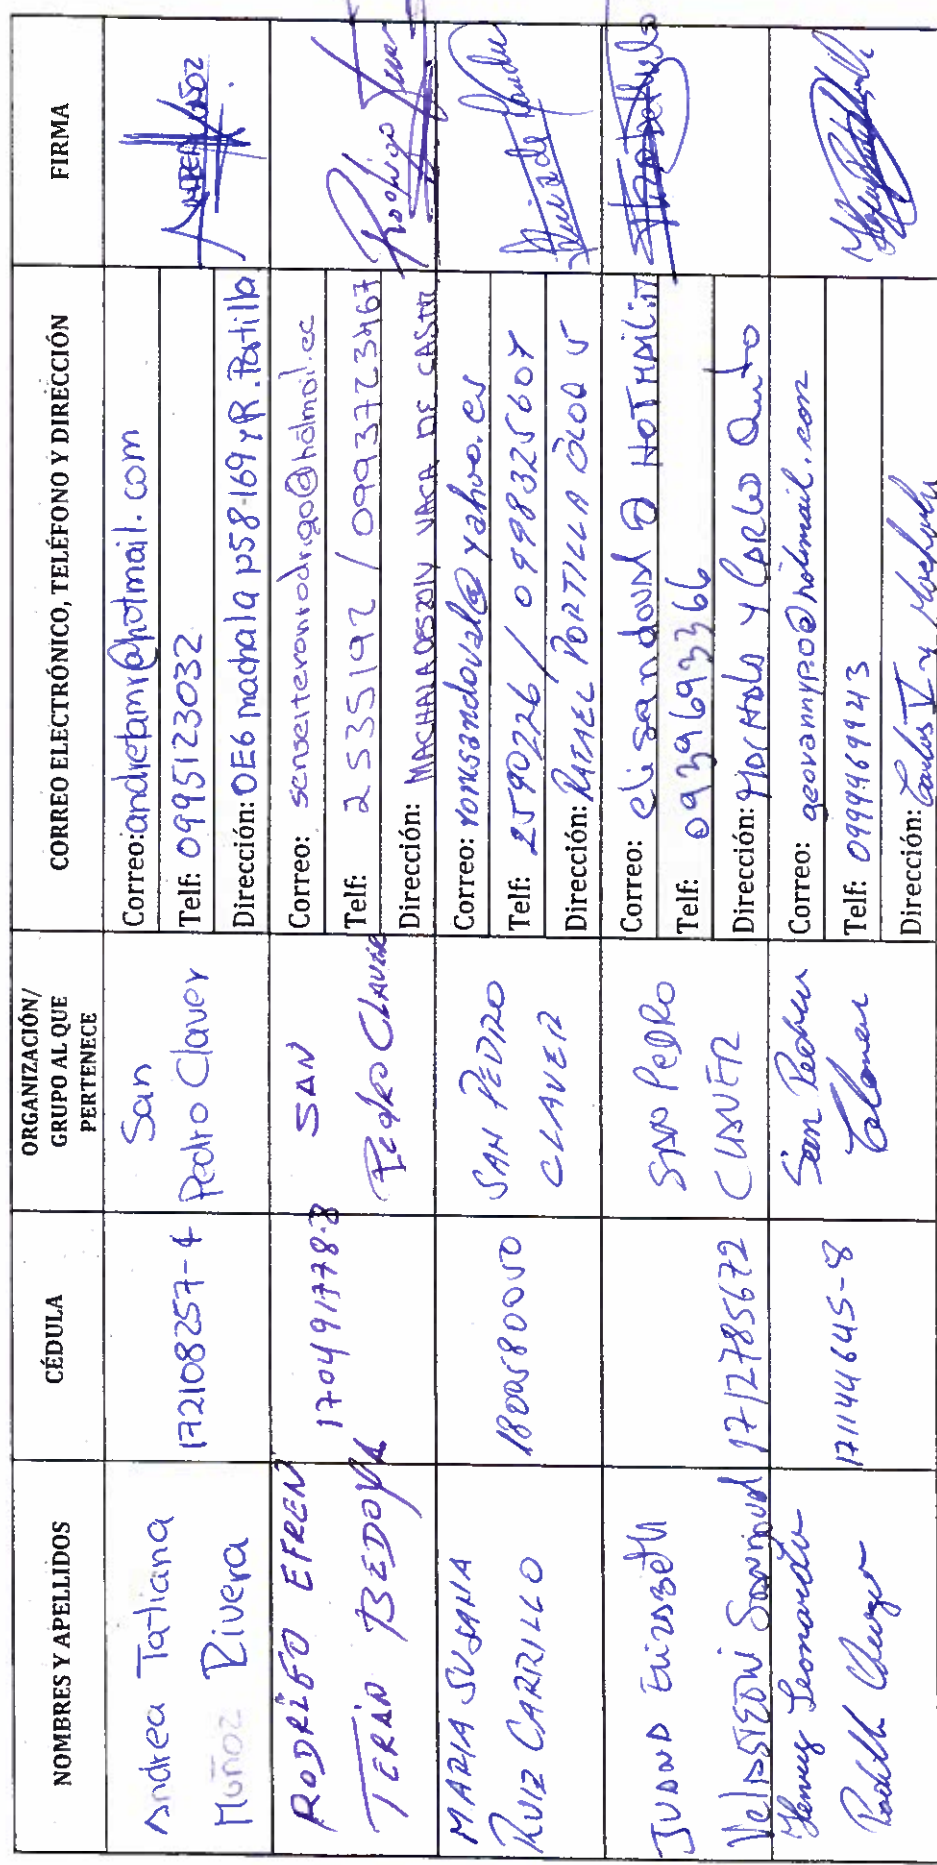 NOMBRES Y APELLIDOS
CÉDULA
ORGANIZACIÓN/
GRUPO AL QUE
PERTENECE
CORREO ELECTRÓNICO, TELÉFONO Y DIRECCIÓN
FIRMA
Andrea Tatiana
Muñoz Rivera
172108257-4
San
Pedro Claver
Correo: andretamr@hotmail.com
Telf: 0995123032
Dirección: OE6 machala N58-169 y R. Portilla
RODRIGO EFREN
TERAN BEDOYA
170491778-8
SAN
Pedro CLAVER
Correo: senseiteranrodrigo@hotmail.ec
Telf: 2535192 / 0993723467
Dirección: MACHALA OE520 IV VACA DE CASTRO
Rodrigo Teran
MARIA SUSANA
RUIZ CARRILLO
1800580050
SAN PEDRO
CLAVER
Correo: romsandoval@yahoo.es
Telf: 2590226 / 0998325607
Dirección: RAFAEL PORTILLA
JUANA ELIZABETH
1712785672
SAN PEDRO
CLAVER
Correo: elisandoval@HOTMAIL
Telf: 0939693366
Dirección: MACHALA y CARLOS Quinto
Henry Leonardo
171144645-8
San Pedro
Claver
Correo: geovannypo@hotmail.com
Telf: 0999469943
Dirección: Carlos V y Machala